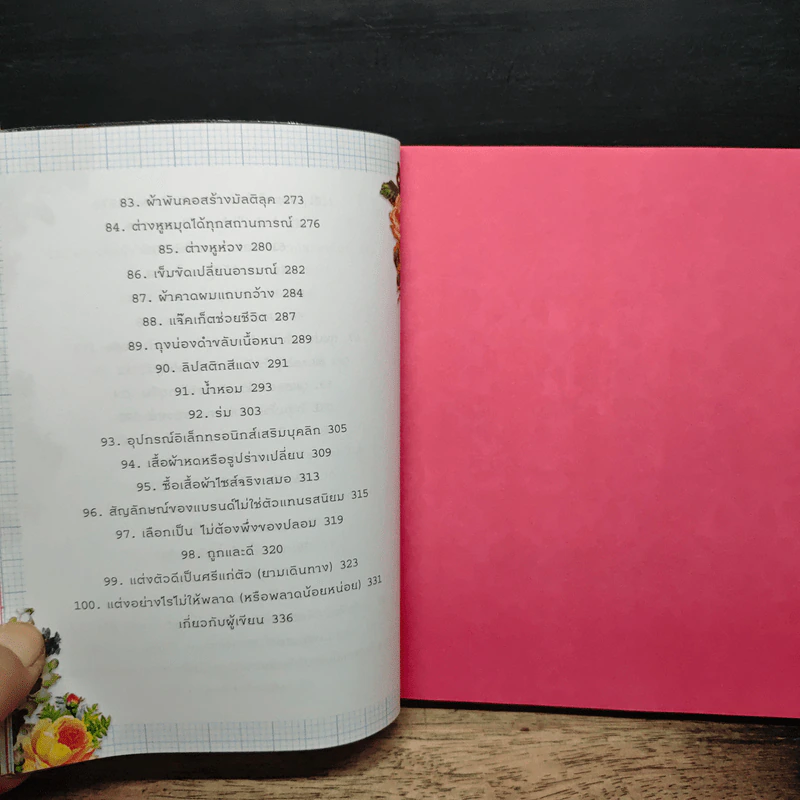 83. ผ้าพันคอสร้างมัลติลุค 273
84. ต่างหูหมุดได้ทุกสถานการณ์ 276
85. ต่างหูห่วง 280
86. เข็มขัดเปลี่ยนอารมณ์ 282
87. ผ้าคาดผมแถบกว้าง 284
88. แจ๊คเก็ตช่วยชีวิต 287
89. ถุงน่องดำขลับเนื้อหนา 289
90. ลิปสติกสีแดง 291
91. น้ำหอม 293
92. ร่ม 303
93. อุปกรณ์อิเล็กทรอนิกส์เสริมบุคลิก 305
94. เสื้อผ้าหดหรือรูปร่างเปลี่ยน 309
95. ซื้อเสื้อผ้าไซส์จริงเสมอ 313
96. สัญลักษณ์ของแบรนด์ไม่ใช่ตัวแทนรสนิยม 315
97. เลือกเป็น ไม่ต้องพึ่งของปลอม 319
98. ถูกและดี 320
99. แต่งตัวดีเป็นศรีแก่ตัว (ยามเดินทาง) 323
100. แต่งอย่างไรไม่ให้พลาด (หรือพลาดน้อยหน่อย) 331
เกี่ยวกับผู้เขียน 336